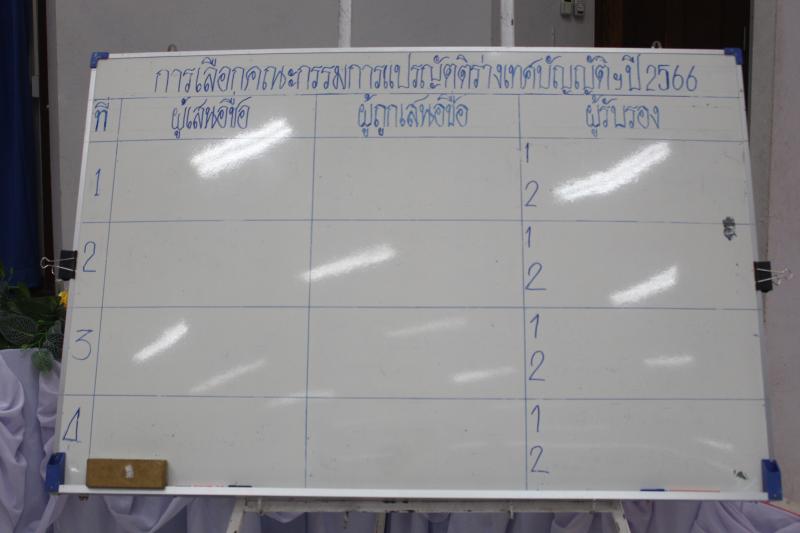 การเลือกคณะกรรมการแปรญัตติร่างเทศบัญญัติฯปี 2566
ที่ ผู้เสนอชื่อ ผู้ถูกเสนอชื่อ ผู้รับรอง
1 1
2
2 1
2
3 1
2
4 1
2